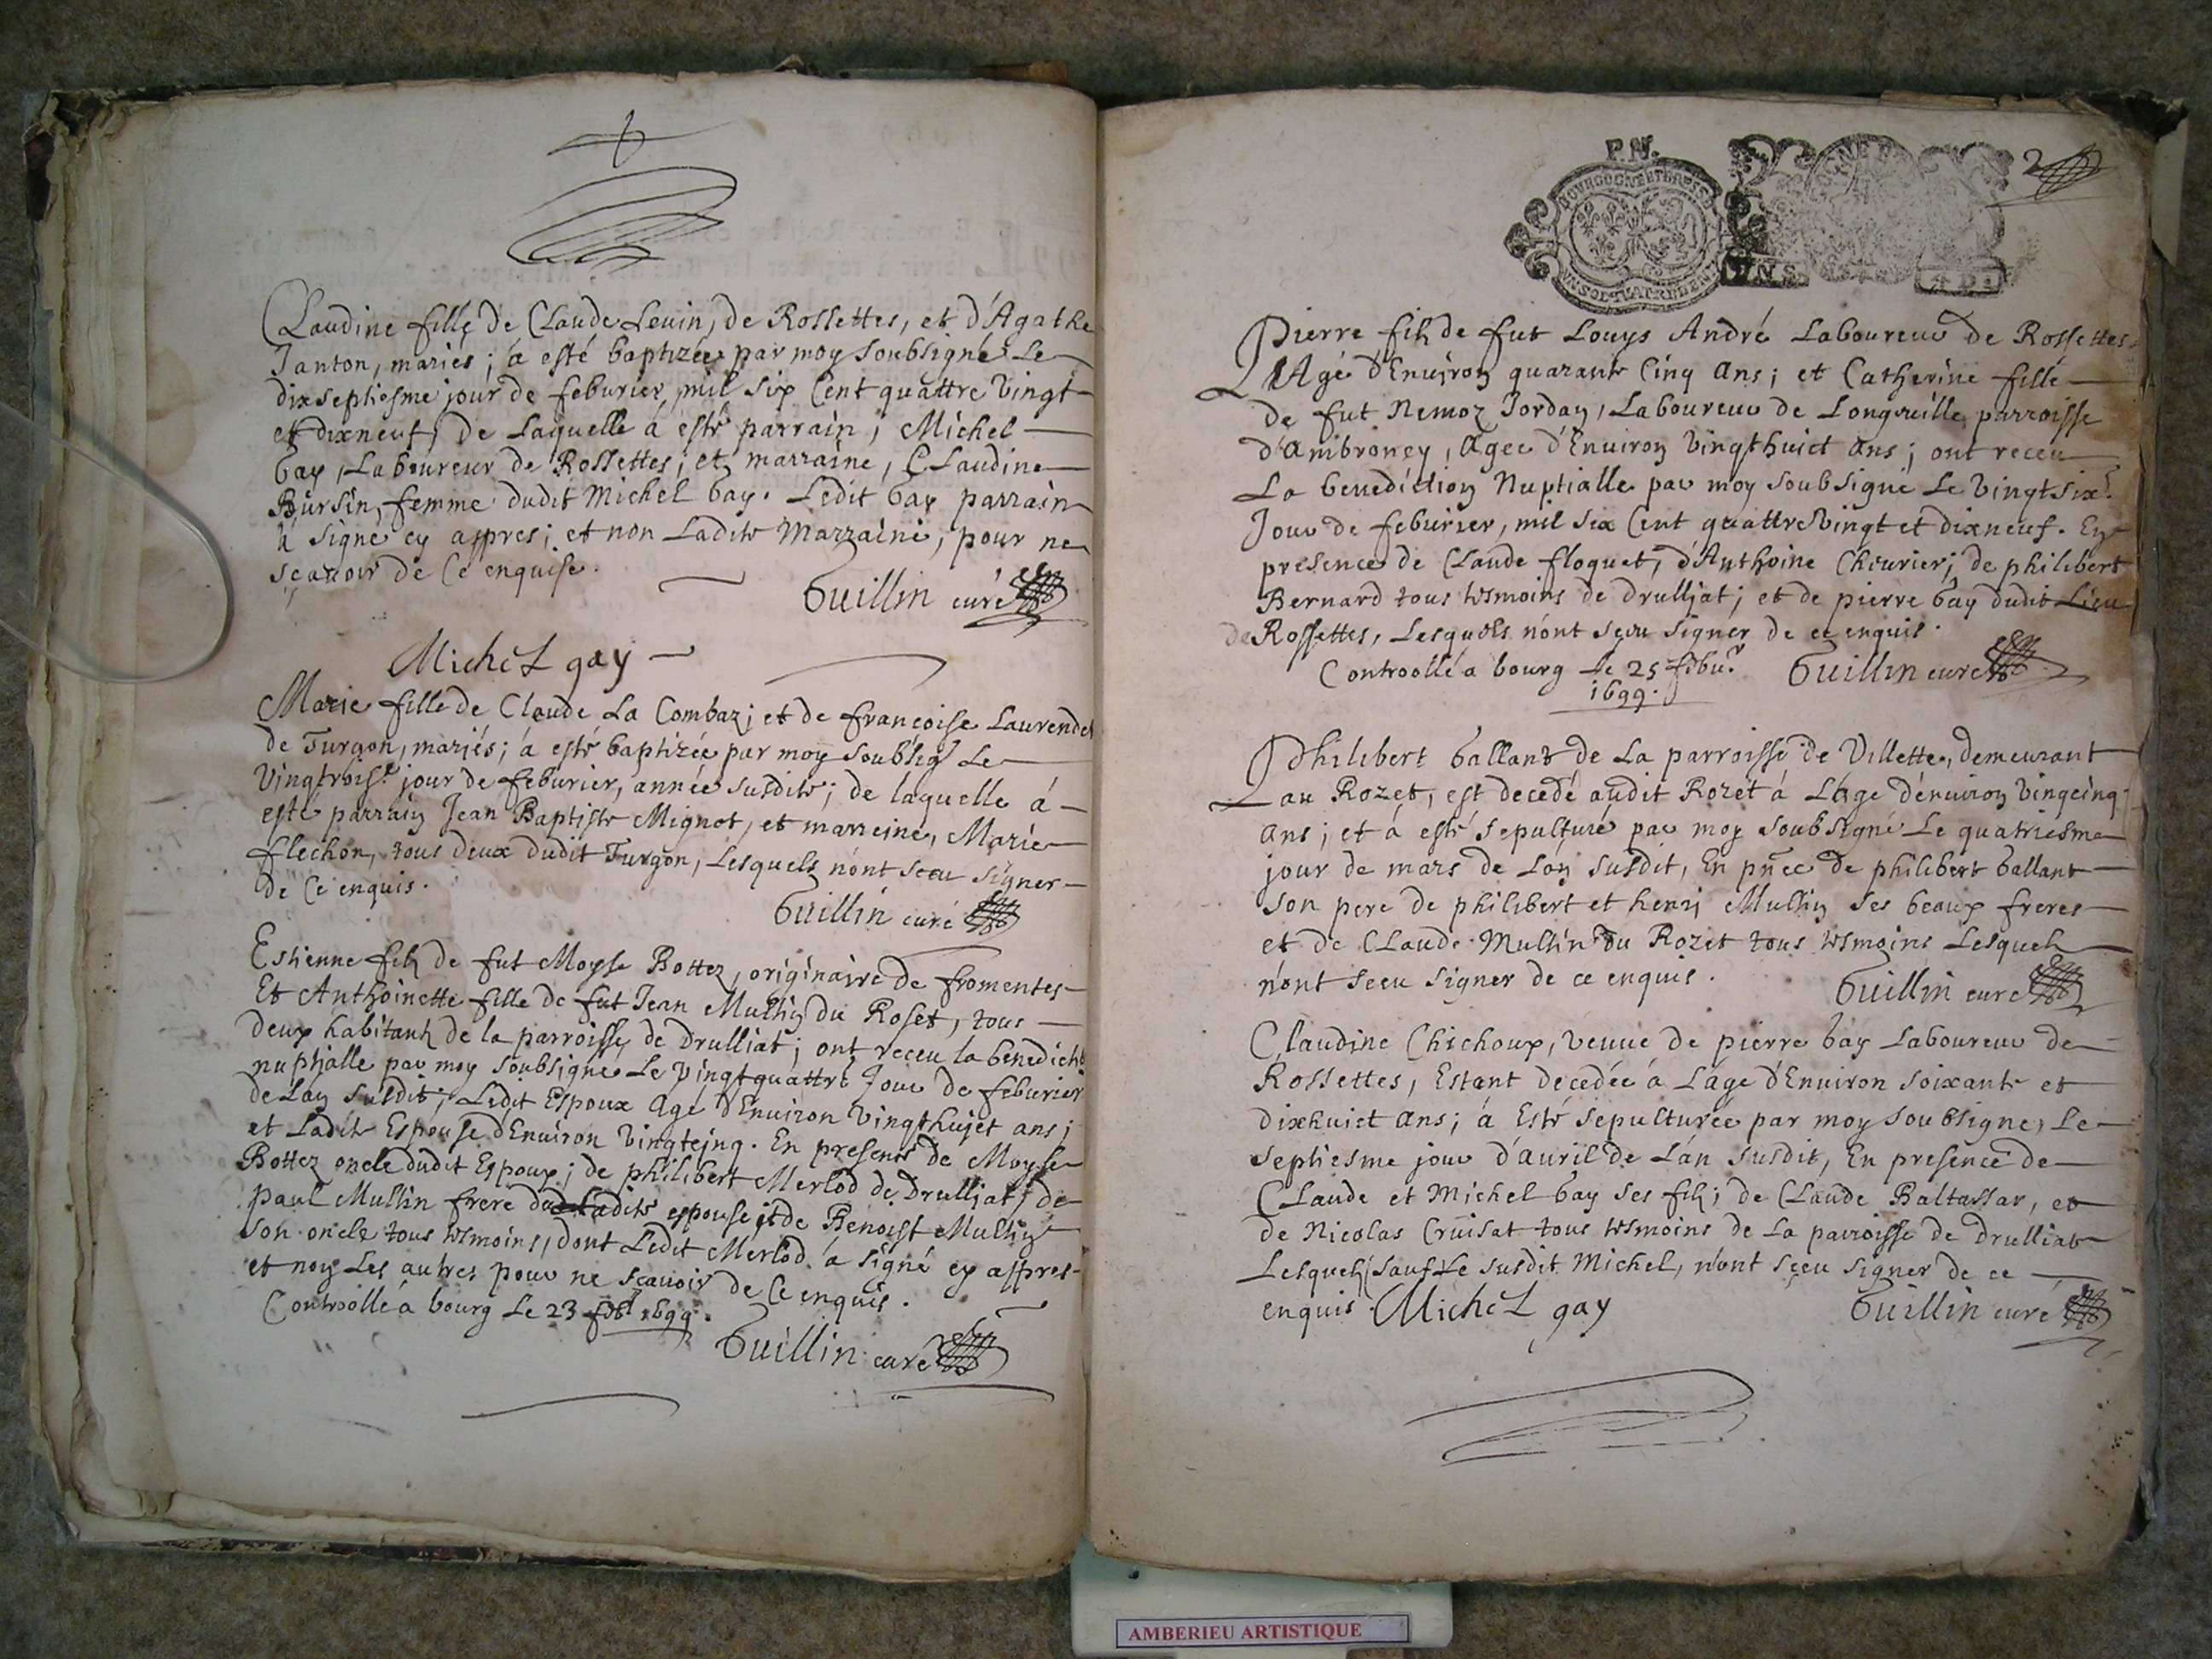 Claudine fille de Claude Levin, de Rossettes, et d'Agathe
Janton, mariés; a esté baptizée par moy soubsigné Le
dixseptiesme jour de feburier, mil six Cent quattre vingt
et dixneuf, de Laquelle a esté parrain, Michel
Gay, Laboureur de Rossettes; et marraine, Claudine
Bursin, femme dudit Michel Gay. Ledit Gay parrain
a signé cy appres; et non Ladite Marraine, pour ne
sçavoir de Ce enquise.
Guillin curé
Michel gay
Marie fille de Claude La Combaz; et de françoise Laurendet
de Turgon, mariés; a esté baptizée par moy soubsig Le
Vingtrois.e jour de feburier, année susdite; de laquelle a
esté parrain Jean Baptiste Mignot, et marreine, Marie
flechon, tous deux dudit Turgon, Lesquels n'ont sceu signer
de Ce enquis.
Guillin curé
Estienne filz de fut Moyse Bottez, originaire de fromentes
Et Anthoinette fille de fut Jean Mullin du Roset, tous
deux habitantz de la parroisse de Drulliat; ont receu la benedict
nuptialle par moy soubsigné Le Vingtquattre Jour de feburier
de Lan susdit; Ledit Espoux agé d'Environ Vingthujet ans;
et Ladite Espouse d'Environ Vingtcinq. En presence de Moyse
Bottez oncle dudit Espoux; de philibert Merlod de Drulliat; de
paul Mullin frere de Ladite espouse et de Benoist Mullin
son oncle tous tesmoins, dont Ledit Merlod a signé cy appres
et non Les autres pour ne scavoir de Ce enquis.
Controollé a bourg Le 23 feb 1699.
Guillin curé
P.N.
2
BOURGOGNE ET BRESSE
UN SOL QUATRE DEN
Pierre filz de fut Louys André Laboureur de Rossettes
Agé d'Environ quarante Cinq ans; et Catherine fille
de fut Nemoz Jordan, Laboureur de Longeville parroisse
d'Ambroney, Agee d'Environ Vingthuict ans; ont receu
La benediction Nuptialle par moy soubsigné Le Vingtsix.e
Jour de feburier, mil six Cent quattreVingt et dixneuf. En
presence de Claude floquet, d'Anthoine Cheurier; de philibert
Bernard tous tesmoins de drulljat; et de pierre Gay dudit Lieu
de Rossettes, Lesquels n'ont sçeu signer de ce enquis.
Controollé a bourg Le 25 febu.r
1699.
Guillin curé
Philibert Gallant de La parroisse de Villette, demeurant
au Rozet, est decedé audit Rozet a Lage d'environ Vingcinq
ans; et a esté sepulturé par moy soubsigné Le quatriesme
jour de mars de Lan susdit, En pñce de philibert Gallant
son pere de philibert et henri Mullin ses beaux freres
et de Claude Mullin du Rozet tous tesmoins Lesquels
n'ont sceu signer de ce enquis.
Guillin curé
Claudine Chichoux, veuve de pierre Gay Laboureur de
Rossettes, Estant decedée a Lage d'Environ soixante et
dixhuict ans; a Esté sepulturée par moy soubsigné, Le
septiesme jour d'auril de L'an susdit, En presence de
Claude et Michel Gay ses filz; de Claude Baltassar, et
de Nicolas Cruisat tous tesmoins de La parroisse de drulliat
Lesquelz (sauf Le susdit Michel, n'ont sçeu signer de ce
enquis. Michel gay Guillin curé
AMBERIEU ARTISTIQUE